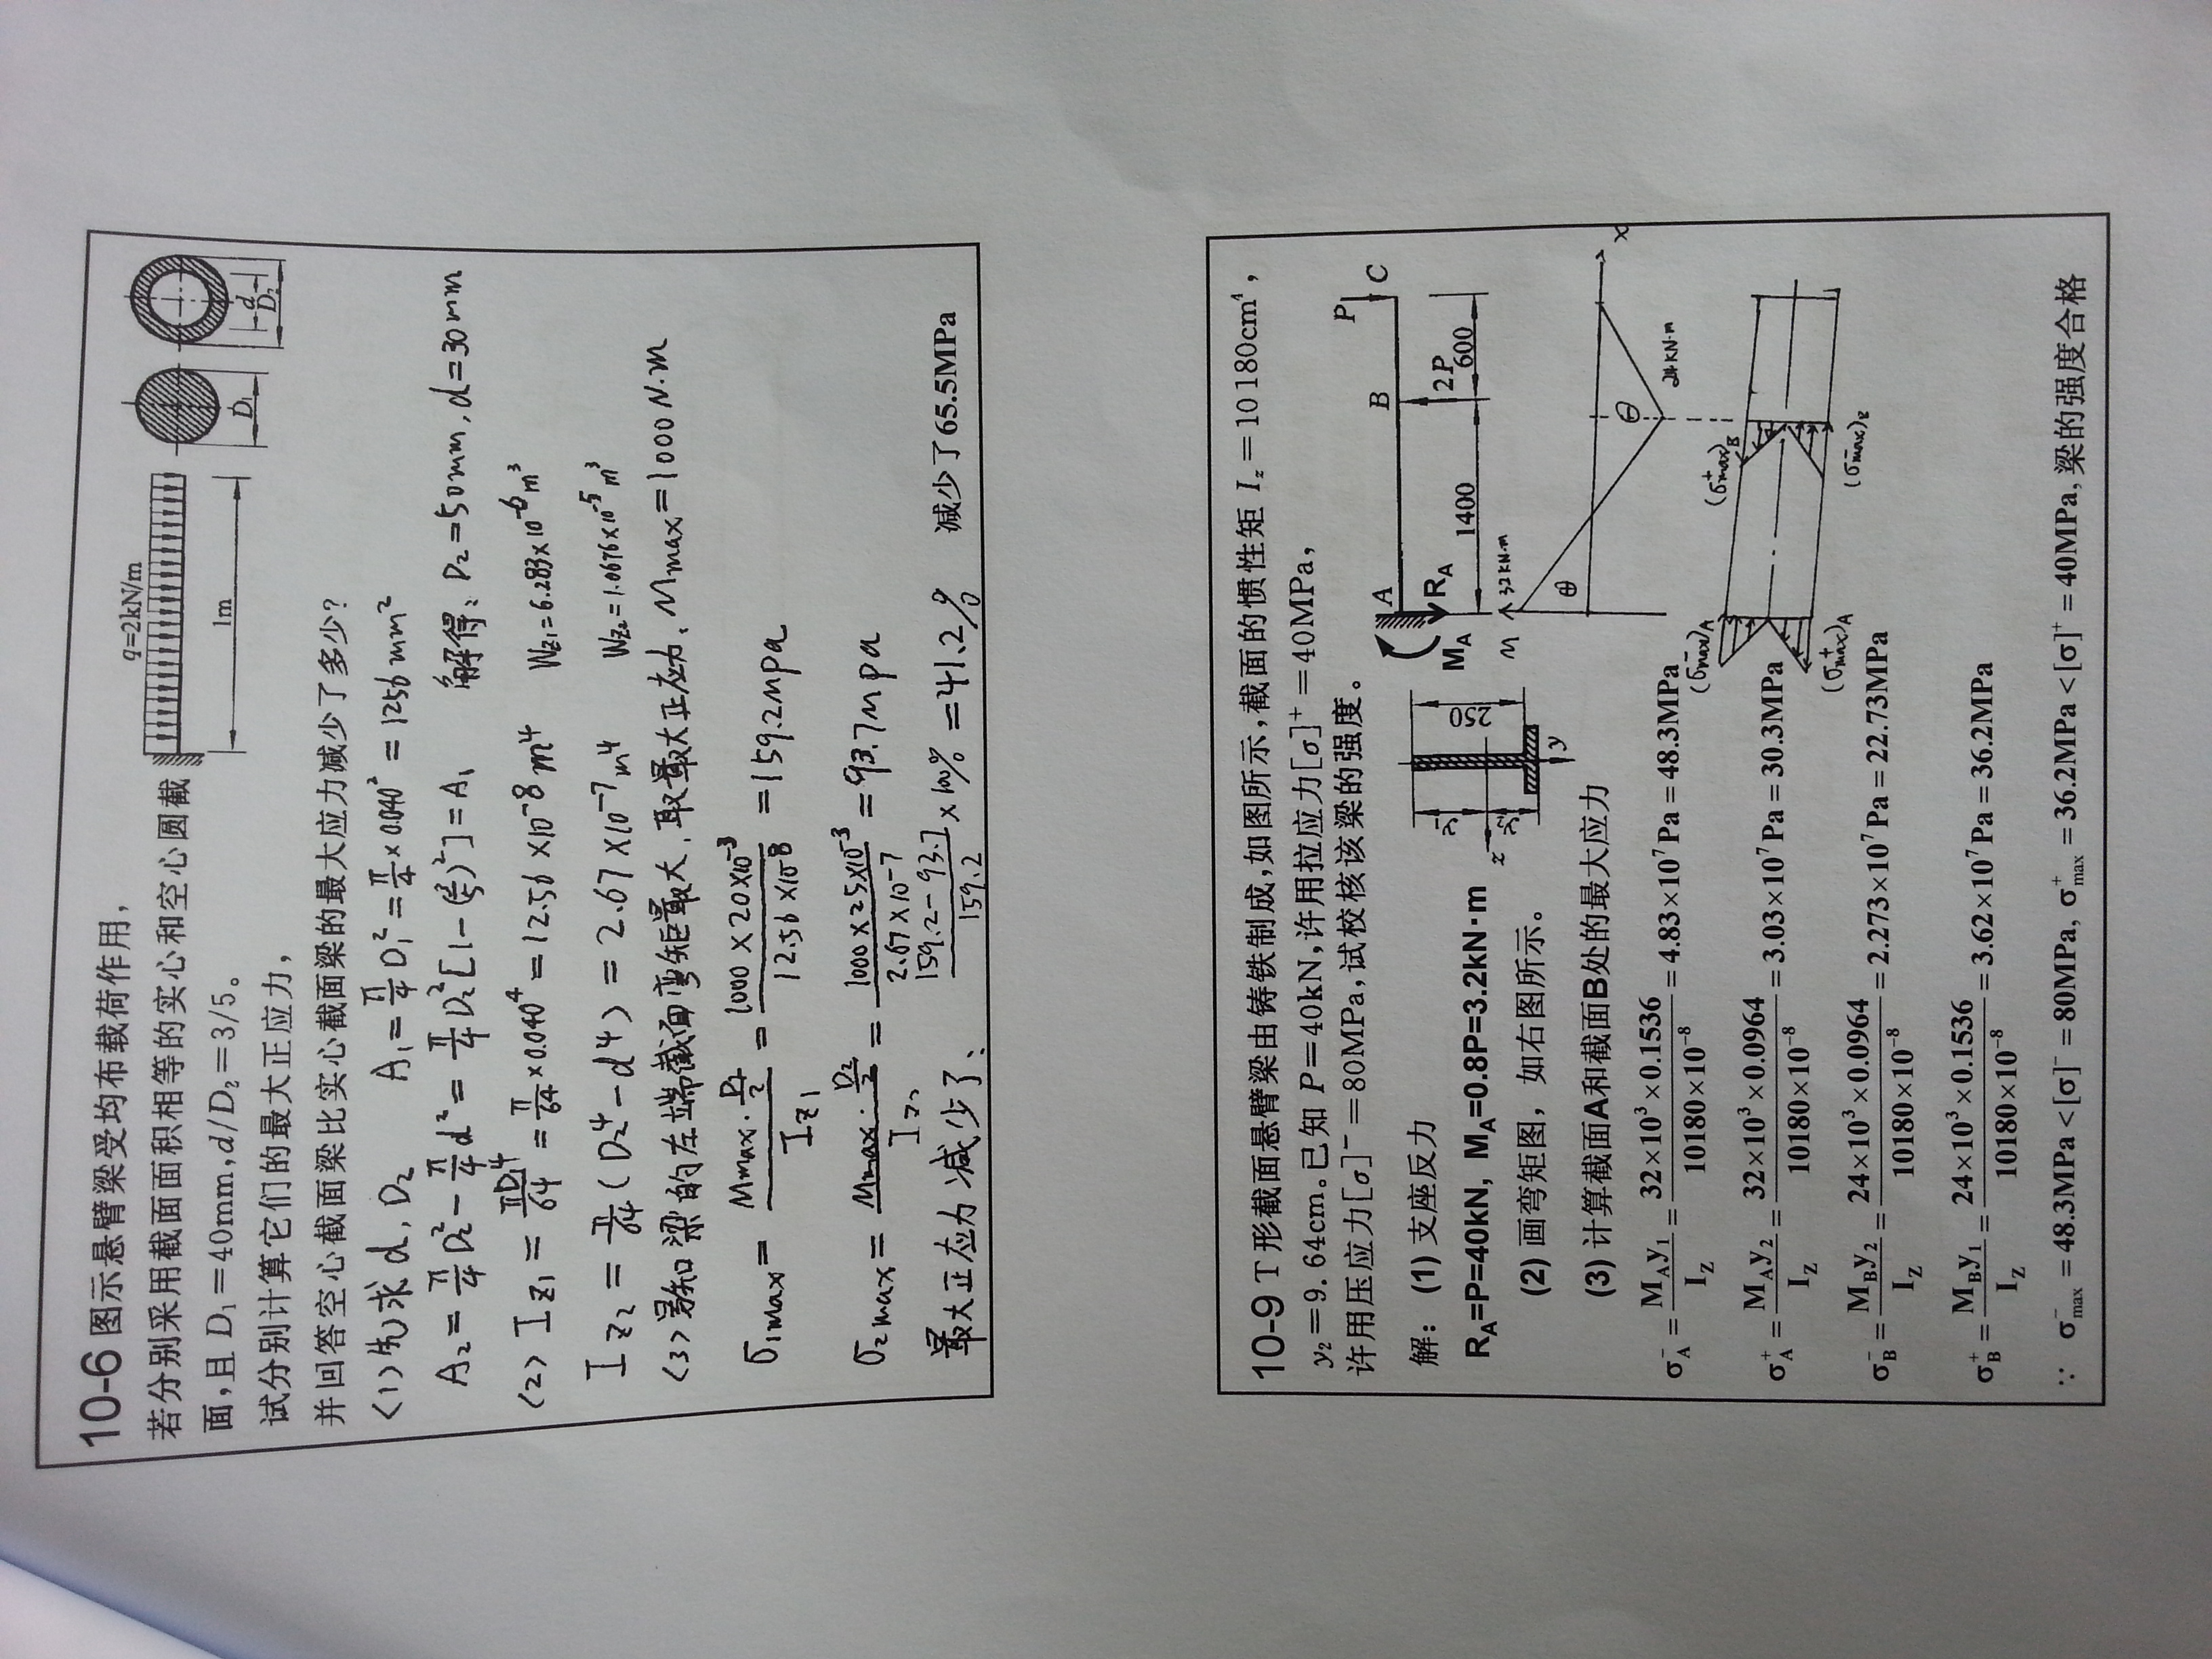 10-6 图示悬臂梁受均布载荷作用，
若分别采用截面面积相等的实心和空心圆截
面，且 D₁＝40mm，d/D₂＝3/5。
试分别计算它们的最大正应力，
并回答空心截面梁比实心截面梁的最大应力减少了多少？
q=2kN/m
1m
D₁
d
D₂
<1>先求 d, D₂ A₁ = π/4 D₁² = π/4 × 0.040² = 1256 mm²
A₂ = π/4 D₂² - π/4 d² = π/4 D₂² [1-(3/5)²] = A₁ 解得: D₂=50mm, d=30mm
<2> I z₁ = πD₁⁴/64 = π/64 × 0.040⁴ = 12.56×10⁻⁸ m⁴ Wz₁=6.283×10⁻⁶ m³
I z₂ = π/64 (D₂⁴-d⁴) = 2.67×10⁻⁷ m⁴ Wz₂=1.0676×10⁻⁵ m³
<3>易知梁的左端截面弯矩最大, 取最大正应力, Mmax=1000N·m
σ₁max = Mmax·D₁/2 / I z₁ = 1000×20×10⁻³ / 12.56×10⁻⁸ = 159.2mpa
σ₂max = Mmax·D₂/2 / I z₂ = 1000×25×10⁻³ / 2.67×10⁻⁷ = 93.7mpa
最大正应力减少了: 159.2-93.7 / 159.2 ×100% = 41.2% 减少了65.5MPa
10-9 T 形截面悬臂梁由铸铁制成，如图所示，截面的惯性矩 I_z＝10 180cm⁴，
y₂＝9.64cm。已知 P＝40kN，许用拉应力[σ]⁺＝40MPa，
许用压应力[σ]⁻＝80MPa，试校核该梁的强度。
解：(1) 支座反力
R_A=P=40kN, M_A=0.8P=3.2kN·m
(2) 画弯矩图，如右图所示。
(3) 计算截面A和截面B处的最大应力
σ_A⁻ = M_A y₁ / I_Z = 32×10³×0.1536 / 10180×10⁻⁸ = 4.83×10⁷Pa = 48.3MPa
σ_A⁺ = M_A y₂ / I_Z = 32×10³×0.0964 / 10180×10⁻⁸ = 3.03×10⁷Pa = 30.3MPa
σ_B⁻ = M_B y₂ / I_Z = 24×10³×0.0964 / 10180×10⁻⁸ = 2.273×10⁷Pa = 22.73MPa
σ_B⁺ = M_B y₁ / I_Z = 24×10³×0.1536 / 10180×10⁻⁸ = 3.62×10⁷Pa = 36.2MPa
∵ σ⁻max = 48.3MPa < [σ]⁻ = 80MPa, σ⁺max = 36.2MPa < [σ]⁺ = 40MPa, 梁的强度合格
250
z
y
A
B
C
P
2P
M_A
R_A
1400
600
M
32KN·m
⊕
⊖
x
24KN·m
(σ⁻max)A
(σ⁺max)A
(σ⁺max)B
(σ⁻max)B